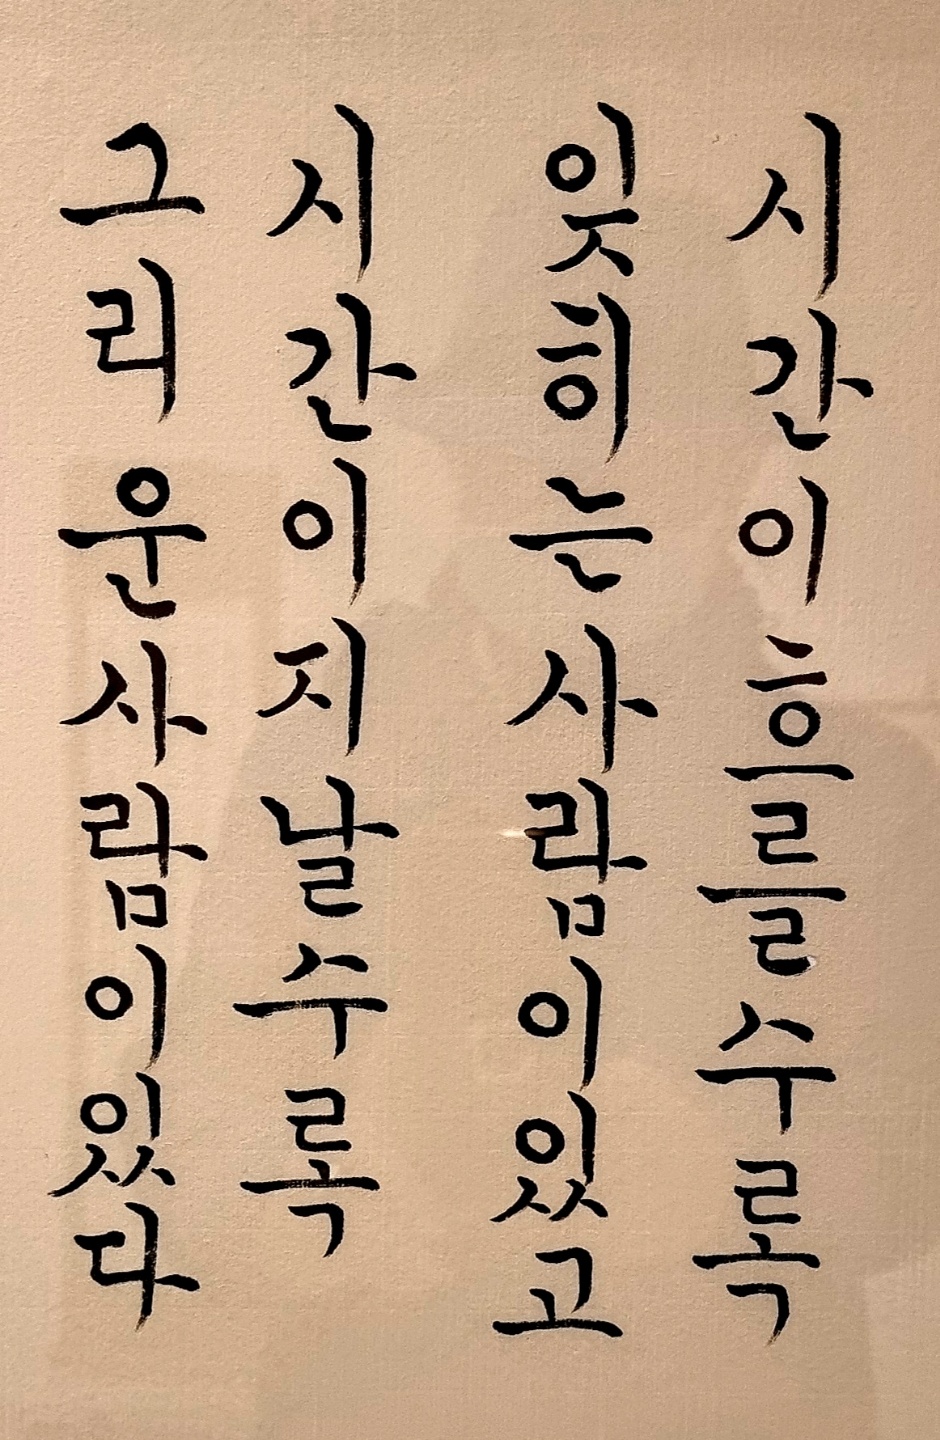 시간이흐를수록
잊히는사람이있고
시간이지날수록
그리운사람이있다